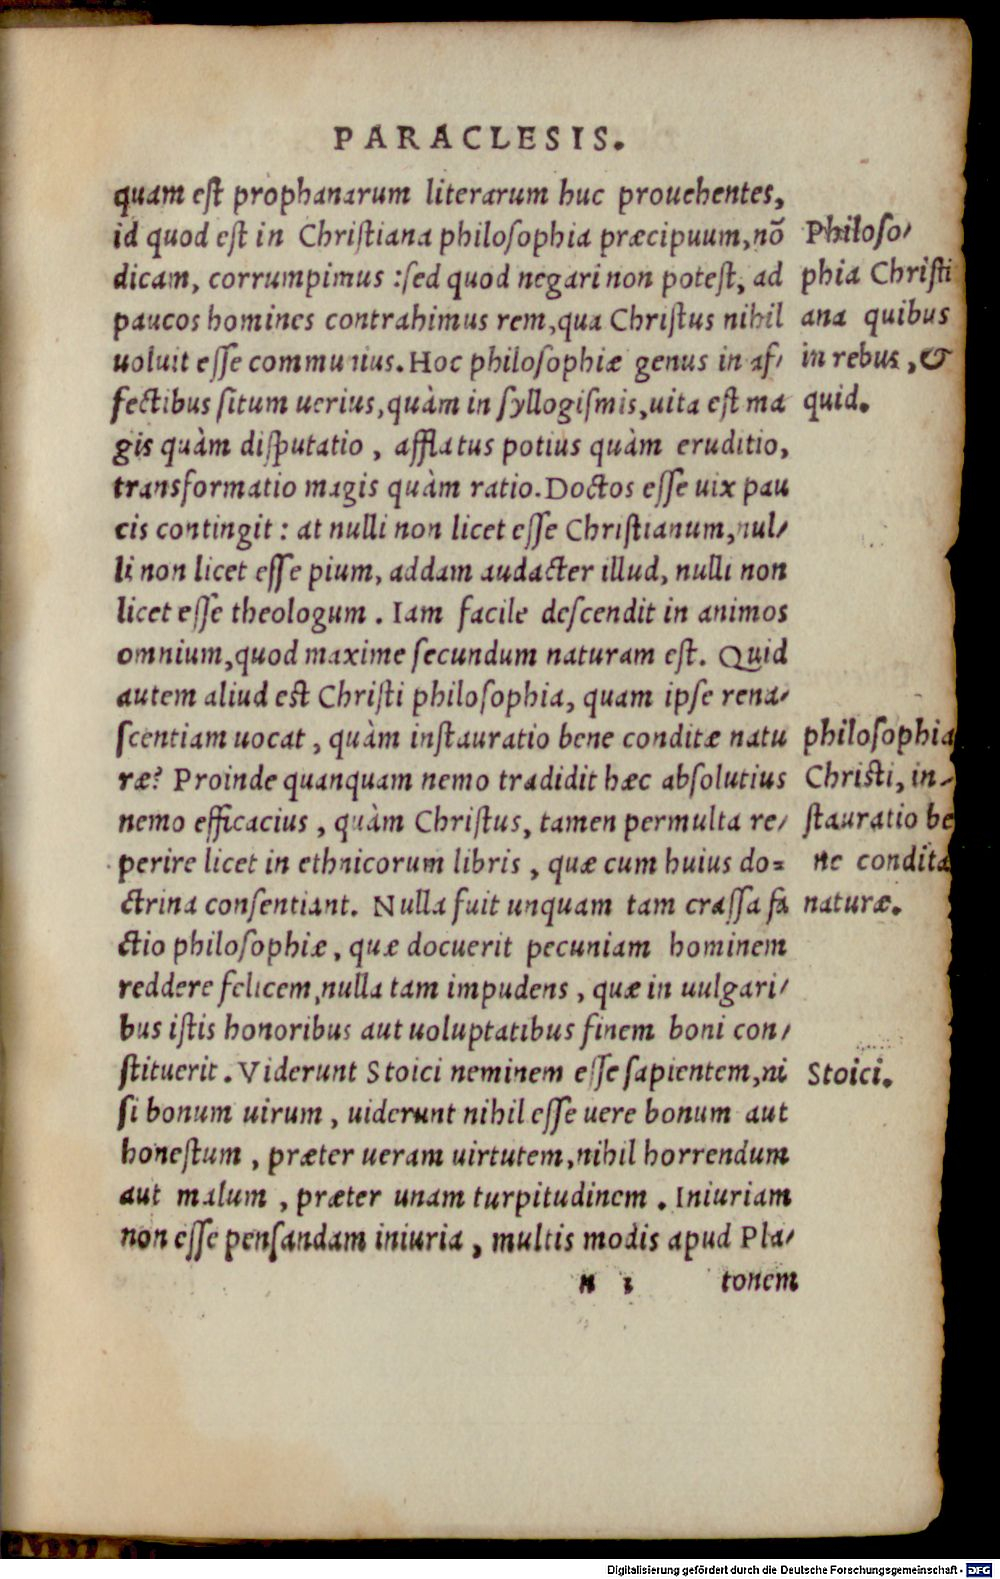 PARACLESIS.
quam est prophanarum literarum huc prouehentes,
id quod est in Christiana philosophia præcipuum, nõ
dicam, corrumpimus : sed quod negari non potest, ad
paucos homines contrahimus rem, qua Christus nihil
uoluit esse communius. Hoc philosophiæ genus in af-
fectibus situm uerius, quàm in syllogismis, uita est ma
gis quàm disputatio, afflatus potius quàm eruditio,
transformatio magis quàm ratio. Doctos esse uix pau
cis contingit : at nulli non licet esse Christianum, nul-
li non licet esse pium, addam audacter illud, nulli non
licet esse theologum. Iam facile descendit in animos
omnium, quod maxime secundum naturam est. Quid
autem aliud est Christi philosophia, quam ipse rena-
scentiam uocat, quàm instauratio bene conditæ natu
ræ? Proinde quanquam nemo tradidit hæc absolutius
nemo efficacius, quàm Christus, tamen permulta re-
perire licet in ethnicorum libris, quæ cum huius do=
ctrina consentiant. Nulla fuit unquam tam crassa fa
ctio philosophiæ, quæ docuerit pecuniam hominem
reddere felicem, nulla tam impudens, quæ in uulgari-
bus istis honoribus aut uoluptatibus finem boni con-
stituerit. Viderunt Stoici neminem esse sapientem, ni
si bonum uirum, uiderunt nihil esse uere bonum aut
honestum, præter ueram uirtutem, nihil horrendum
aut malum, præter unam turpitudinem. Iniuriam
non esse pensandam iniuria, multis modis apud Pla-
N 1 tonem
Philoso-
phia Christi
ana quibus
in rebus, &
quid.
philosophia
Christi, in-
stauratio be
ne condita
naturæ.
Stoici.
Digitalisierung gefördert durch die Deutsche Forschungsgemeinschaft - DFG